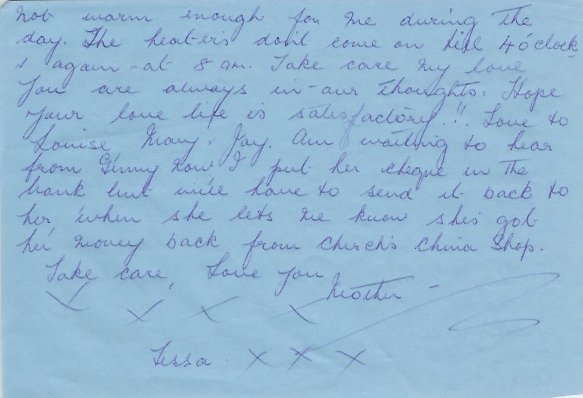 not warm enough for me during the
day. The heaters don't come on till 4 o'clock
& again at 8 am. Take care my love
You are always in our thoughts. Hope
your love life is satisfactory!!. Love to
Louise, Mary & Jay. Am waiting to hear
from Ginny now I put her cheque in the
bank but we'll have to send it back to
her when she lets me know she's got
her money back from Church's China Shop.
Take care, Love You
Mother -
X X X X
Tessa. X X X